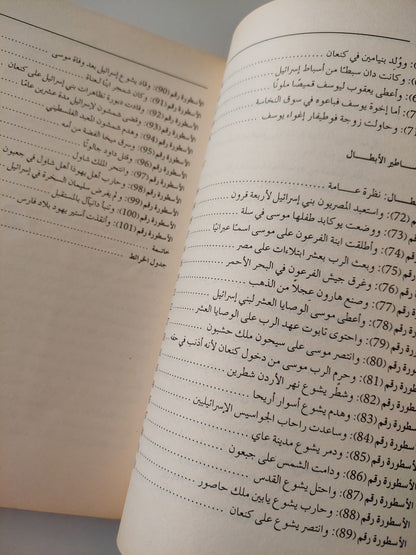 ): ووُلد بنيامين في كنعان
): وكانت دان سبطًا من أسباط إسرائيل
): وأعطى يعقوب ليوسف قميصًا ملونًا
): أما إخوة يوسف فباعوه في سوق النخاسة
): وحاولت زوجة فوطيفار إغواء يوسف
ـاطير الأبطال
ـطال: نظرة عـامـة
رقم (72): واستعبد المصريون بني إسرائيل لأربعة قرون
رقم (73): ووضعت يوكابد طفلها موسى في سلة
رقم (74): وأطلقت ابنة الفرعون على موسى اسمًا عبرانيًا
رقم (75): وبعث الرب بعشر ابتلاءات على مصر
رقم (76): وغرق جيش الفرعون في البحر الأحمر
رقم (77): وصنع هارون عجلاً من الذهب
رقم (78): وأعطى موسى الوصايا العشر لبني إسرائيل
رقم (79): واحتوى تابوت عهد الرب على الوصايا العشر
رقم (80): وانتصر موسى على سيحون ملك حشبون
الأسطورة رقم (81): وحرم الرب موسى من دخول كنعان لأنه أذنب في حقه
الأسطورة رقم (82): وشطّر يشوع نهر الأردن شطرين
الأسطورة رقم (83): وهدم يشوع أسوار أريحا
الأسطورة رقم (84): وساعدت راحاب الجواسيس الإسرائيليين
الأسطورة رقم (85): ودمر يشوع مدينة عاي
الأسطورة رقم (86): ودامت الشمس على جبعون
الأسطورة رقم (87): واحتل يشوع القدس
الأسطورة رقم (88): وحارب يشوع يابين ملك حاصور
الأسطورة رقم (89): وانتصر يشوع على كنعان
الأسطورة رقم (90): وقاد يشوع إسرائيل بعد وفاة موسى
الأسطورة رقم (91): وكان شمجر ابنًا لعناة
الأسطورة رقم (92): وقادت دبورة تظاهرات بني إسرائيل على كنعان
الأسطورة رقم (93): وقضى شمشون لإسرائيل ستة عشرين عامًا
الأسطورة رقم (94): وهدم شمشون المعبد الفلسطيني
الأسطورة رقم (95): وسرق ميخا الفضة من أمه
الأسطورة رقم (96): وقتل داود جالوتًا
الأسطورة رقم (97): وانتحر الملك شاول
الأسطورة رقم (98): وحارب أهل يهوذا أهل شاول في جبعون
الأسطورة رقم (99): ولم يفرض سليمان السخرة في إسرائيل
الأسطورة رقم (100): وتنبأ دانيال بالمستقبل
الأسطورة رقم (101): وأنقذت أستير يهود بلاد فارس
خاتمة
جدول الخرائط